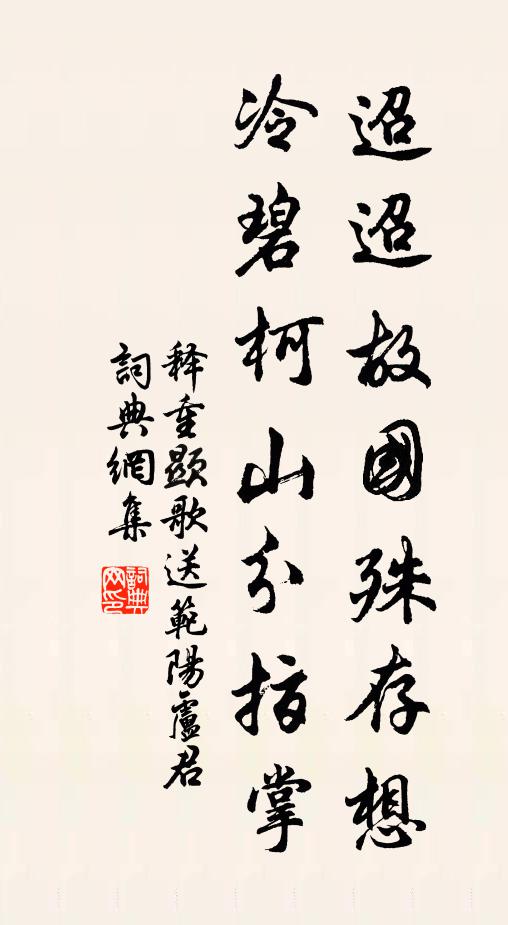 迢迢故國殊存想
冷碧柯山分指掌
釋重顯歌送範陽盧君
詞典網集
詞典网印